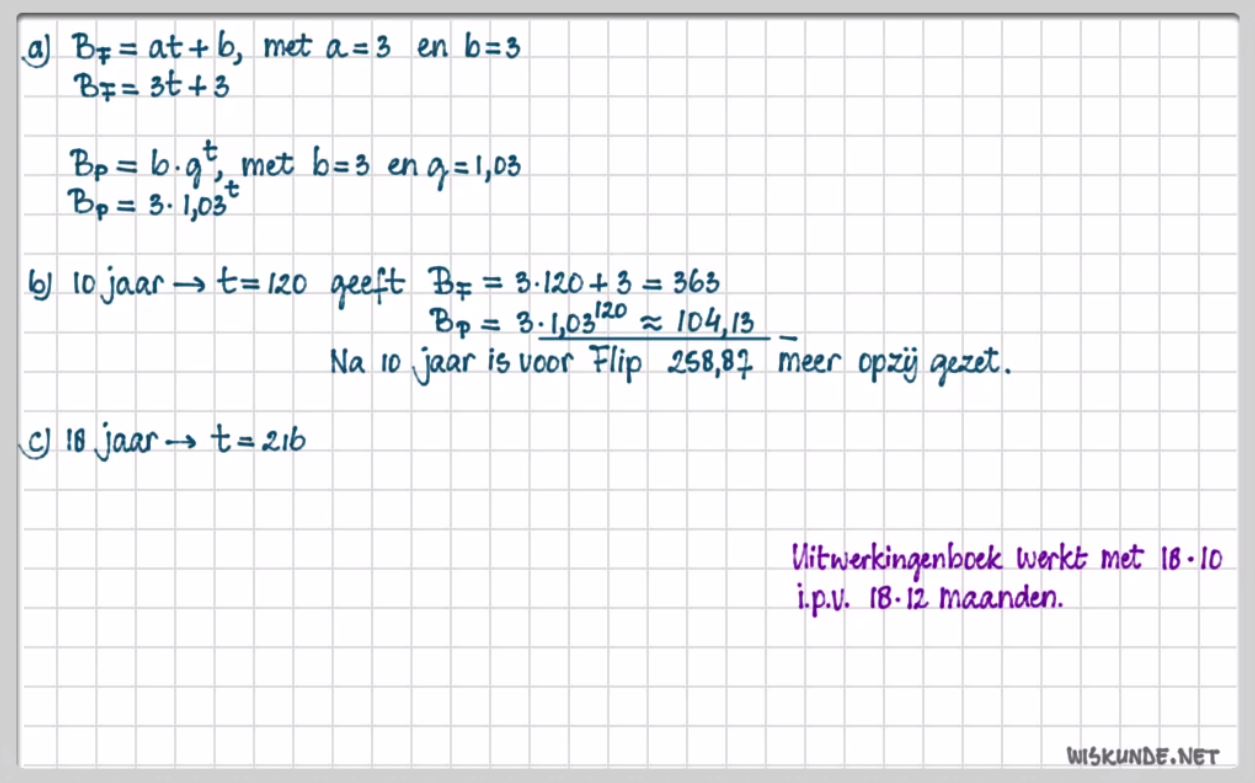 a) B_F = at + b, met a = 3 en b = 3
B_F = 3t + 3
B_P = b · g^t, met b = 3 en g = 1,03
B_P = 3 · 1,03^t
b) 10 jaar → t = 120 geeft B_F = 3 · 120 + 3 = 363
B_P = 3 · 1,03^120 ≈ 104,13 –
Na 10 jaar is voor Flip 258,87 meer opzij gezet.
c) 18 jaar → t = 216
Uitwerkingenboek werkt met 18 · 10
i.p.v. 18 · 12 maanden.
WISKUNDE.NET